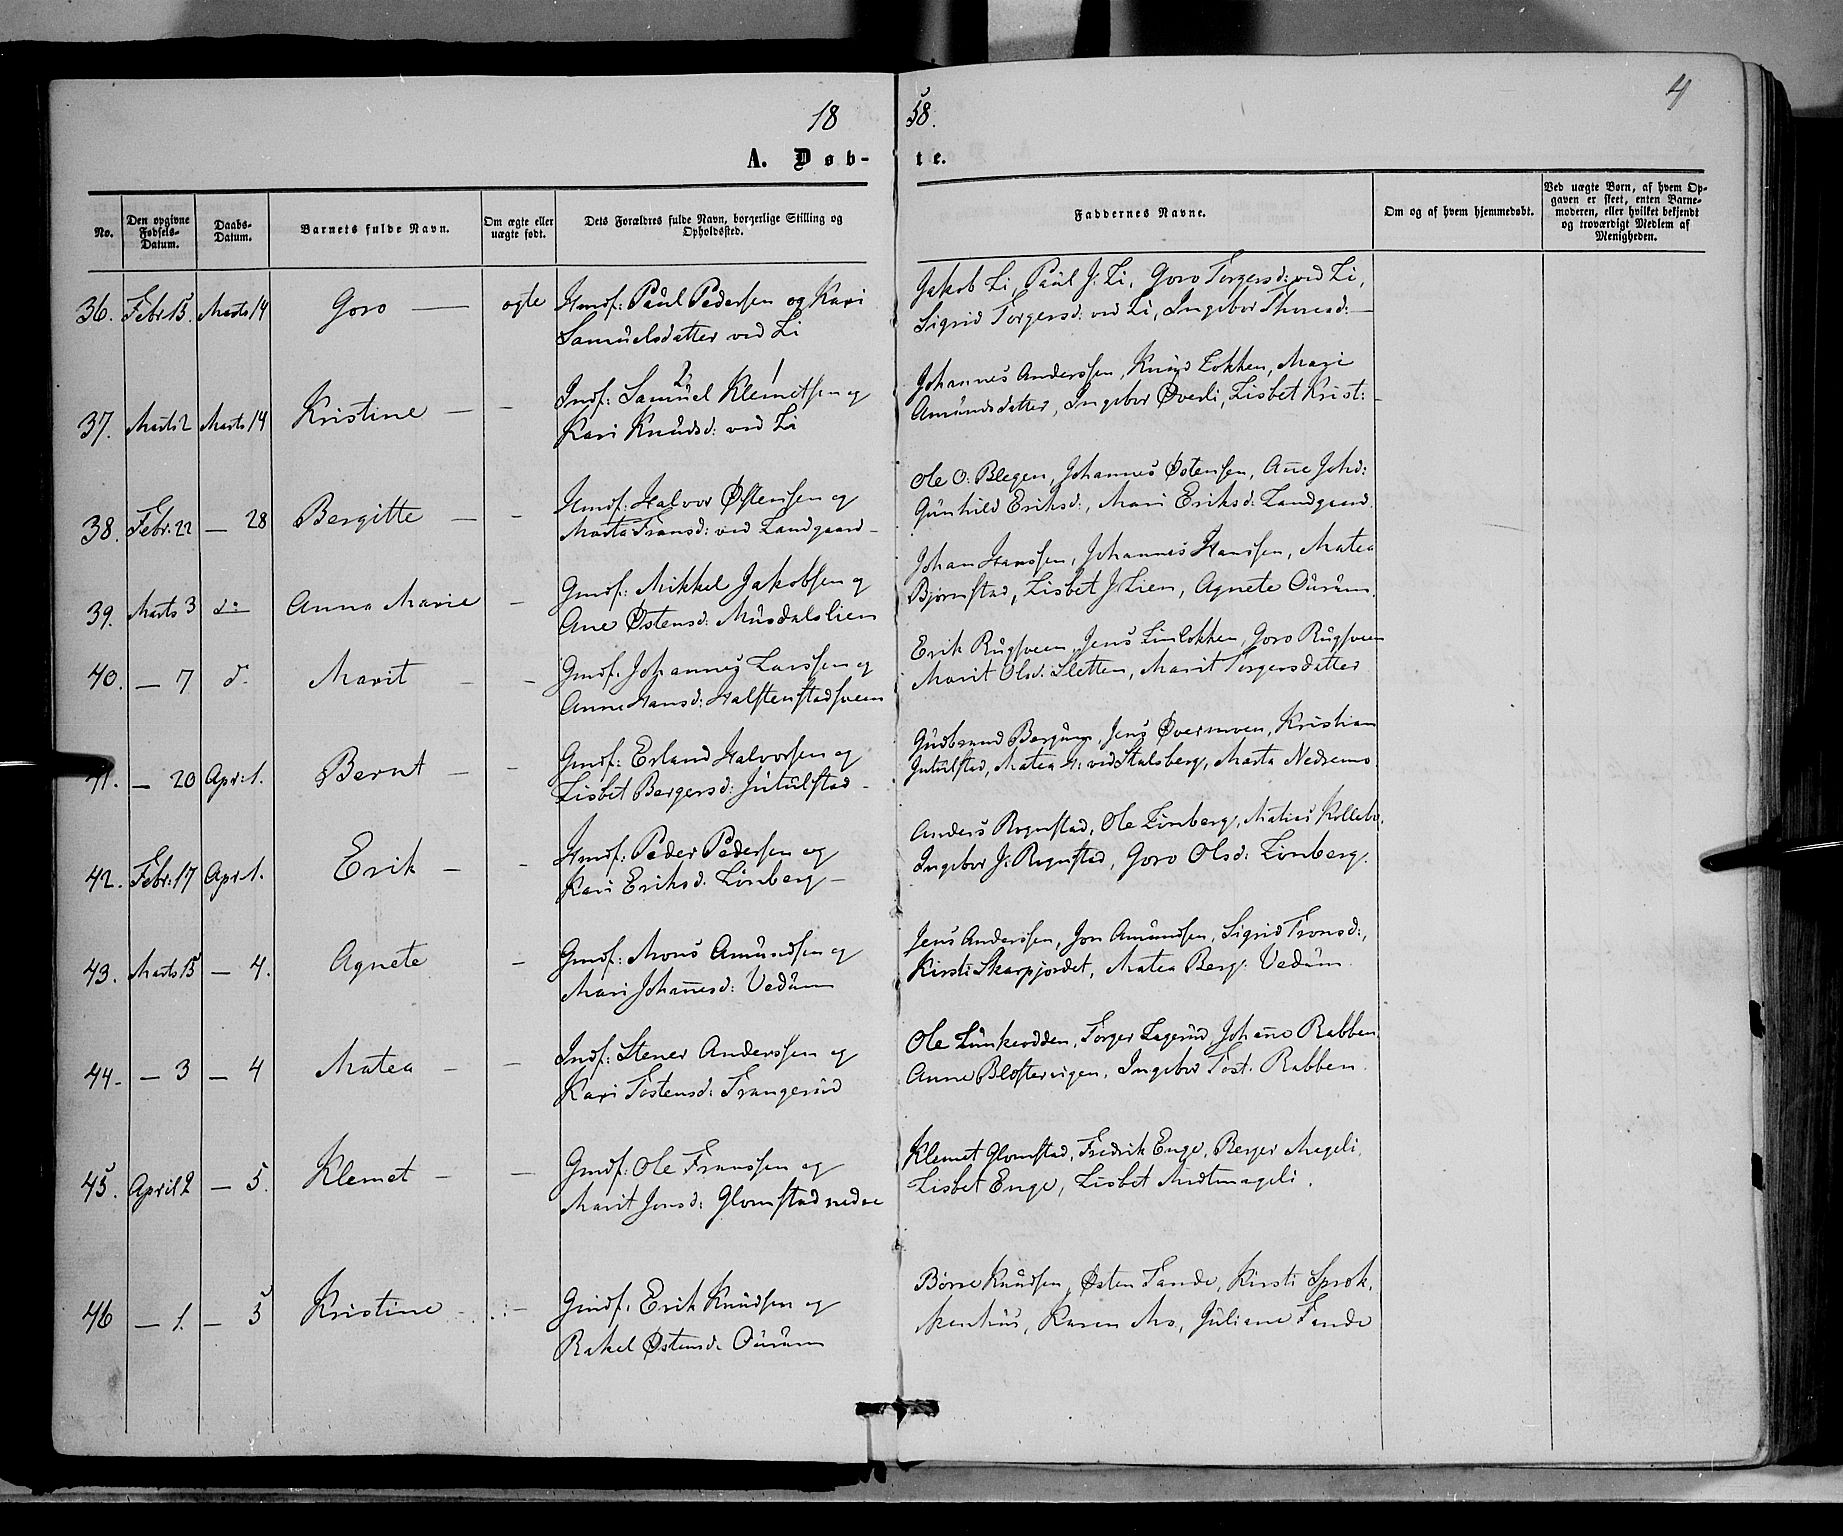 18 58.
4
A. Døb- te.
No.
Den opgivne Fødsels-Datum.
Daabs-Datum.
Barnets fulde Navn.
Om ægte eller uægte født.
Dets Forældres fulde Navn, borgerlige Stilling og Opholdssted.
Faddernes Navne.
Om og af hvem hjemmedøbt.
Ved uægte Børn, af hvem Opgaven er skeet, enten Barnemoderen, eller hvilket bekjendt og troværdigt Medlem af Menigheden.
36. Febr 15. Marts 14 Goro — ægte Hmdf: Paul Pedersen og Kari
Samuelsdatter ved Li
Jakob Li, Paul J: Li, Goro Torgersd: ved Li,
Sigrid Torgersd: ved Li, Ingebor Thoresd: —
37. Marts 2 Marts 14 Kristine — — Indf: Samuel Klemetsen og
Kari Knudsd: ved Li
Johannes Anderssen, Knud Løkken, Mari
Amundsdatter, Ingebor Øverli, Lisbet Krist: -
38. Febr: 22 — 28 Bergitte — — Hmdf: Halvor Østensen og
Marta Fransd: ved Landgaard —
Ole O: Blegen, Johannes Østensen, Ane Johd:
Gunhild Eriksd:, Mari Eriksd: Landgaard.
39. Marts 3 do Anna Marie — Gmdf: Mikkel Jakobsen og
Ane Østensd: Musdalslien
Johan Hanssen, Johannes Hanssen, Matea
Bjørnstad, Lisbet J: Lien, Agnete Ourum.
40. — 7 d. Marit — — Gmdf: Johannes Larssen og
Anne Hansd: Halstenstadsveen
Erik Rugsveen, Jens Linløkken, Goro Rugsveen
Marit Olsd: Sletten, Marit Torgersdatter
41. — 20 Apr: 1. Bernt — — Gmdf: Erland Halvorsen og
Lisbet Bergersd: Jutulstad —
Gudbrand Berg, Jens Øvermoen, Kristian
Jutulstad, Matea H: ved Stalsberg, Marta Nedremo
42. Febr: 17 Apr: 1. Erik — — Hmdf: Peder Pedersen og
Kari Eriksd: Lønberg —
Anders Rognstad, Ole Lønberg, Matias Kollebo,
Ingebor J: Rognstad, Goro Olsd: Lønberg.
43. Marts 15 — 4. Agnete — Gmdf: Mons Amundsen og
Mari Johanesd: Vedum
Jens Anderssen, Jon Amundsen, Sigrid Tronsd:,
Kirsti Skarpjordet, Matea Berg: Vedum.
44 - — 3 — 4 Matea — — Indf: Stener Anderssen og
Kari Tostensd: Trangerud
Ole Lunkeodden, Torger Lagerud, Johane Rabben,
Anne Blostervigen, Ingebor Tost: Rabben.
45. April 2 — 5. Klemet — — Gmdf: Ole Franssen og
Marit Jonsd: Glomstad nedre
Klemet Glomstad, Fredrik Enge, Berger Mageli,
Lisbet Enge, Lisbet Midtmageli.
46 — 1. — 5 Kristine — — Gmdf: Erik Knudsen og
Rakel Østensd: Ourum
Børre Knudsen, Østen Tande, Kirsti Sprek,
Karen Mo, Juliane Tande